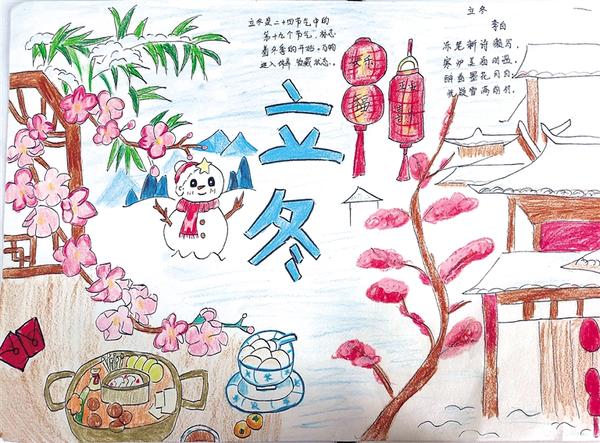 立冬是二十四节气中的
第十九个节气，标志
着冬季的开始，万物
进入休养、收藏状态。
立冬
立冬
李白
冻笔新诗懒写，
寒炉美酒时温。
醉看墨花月白，
恍疑雪满前村。